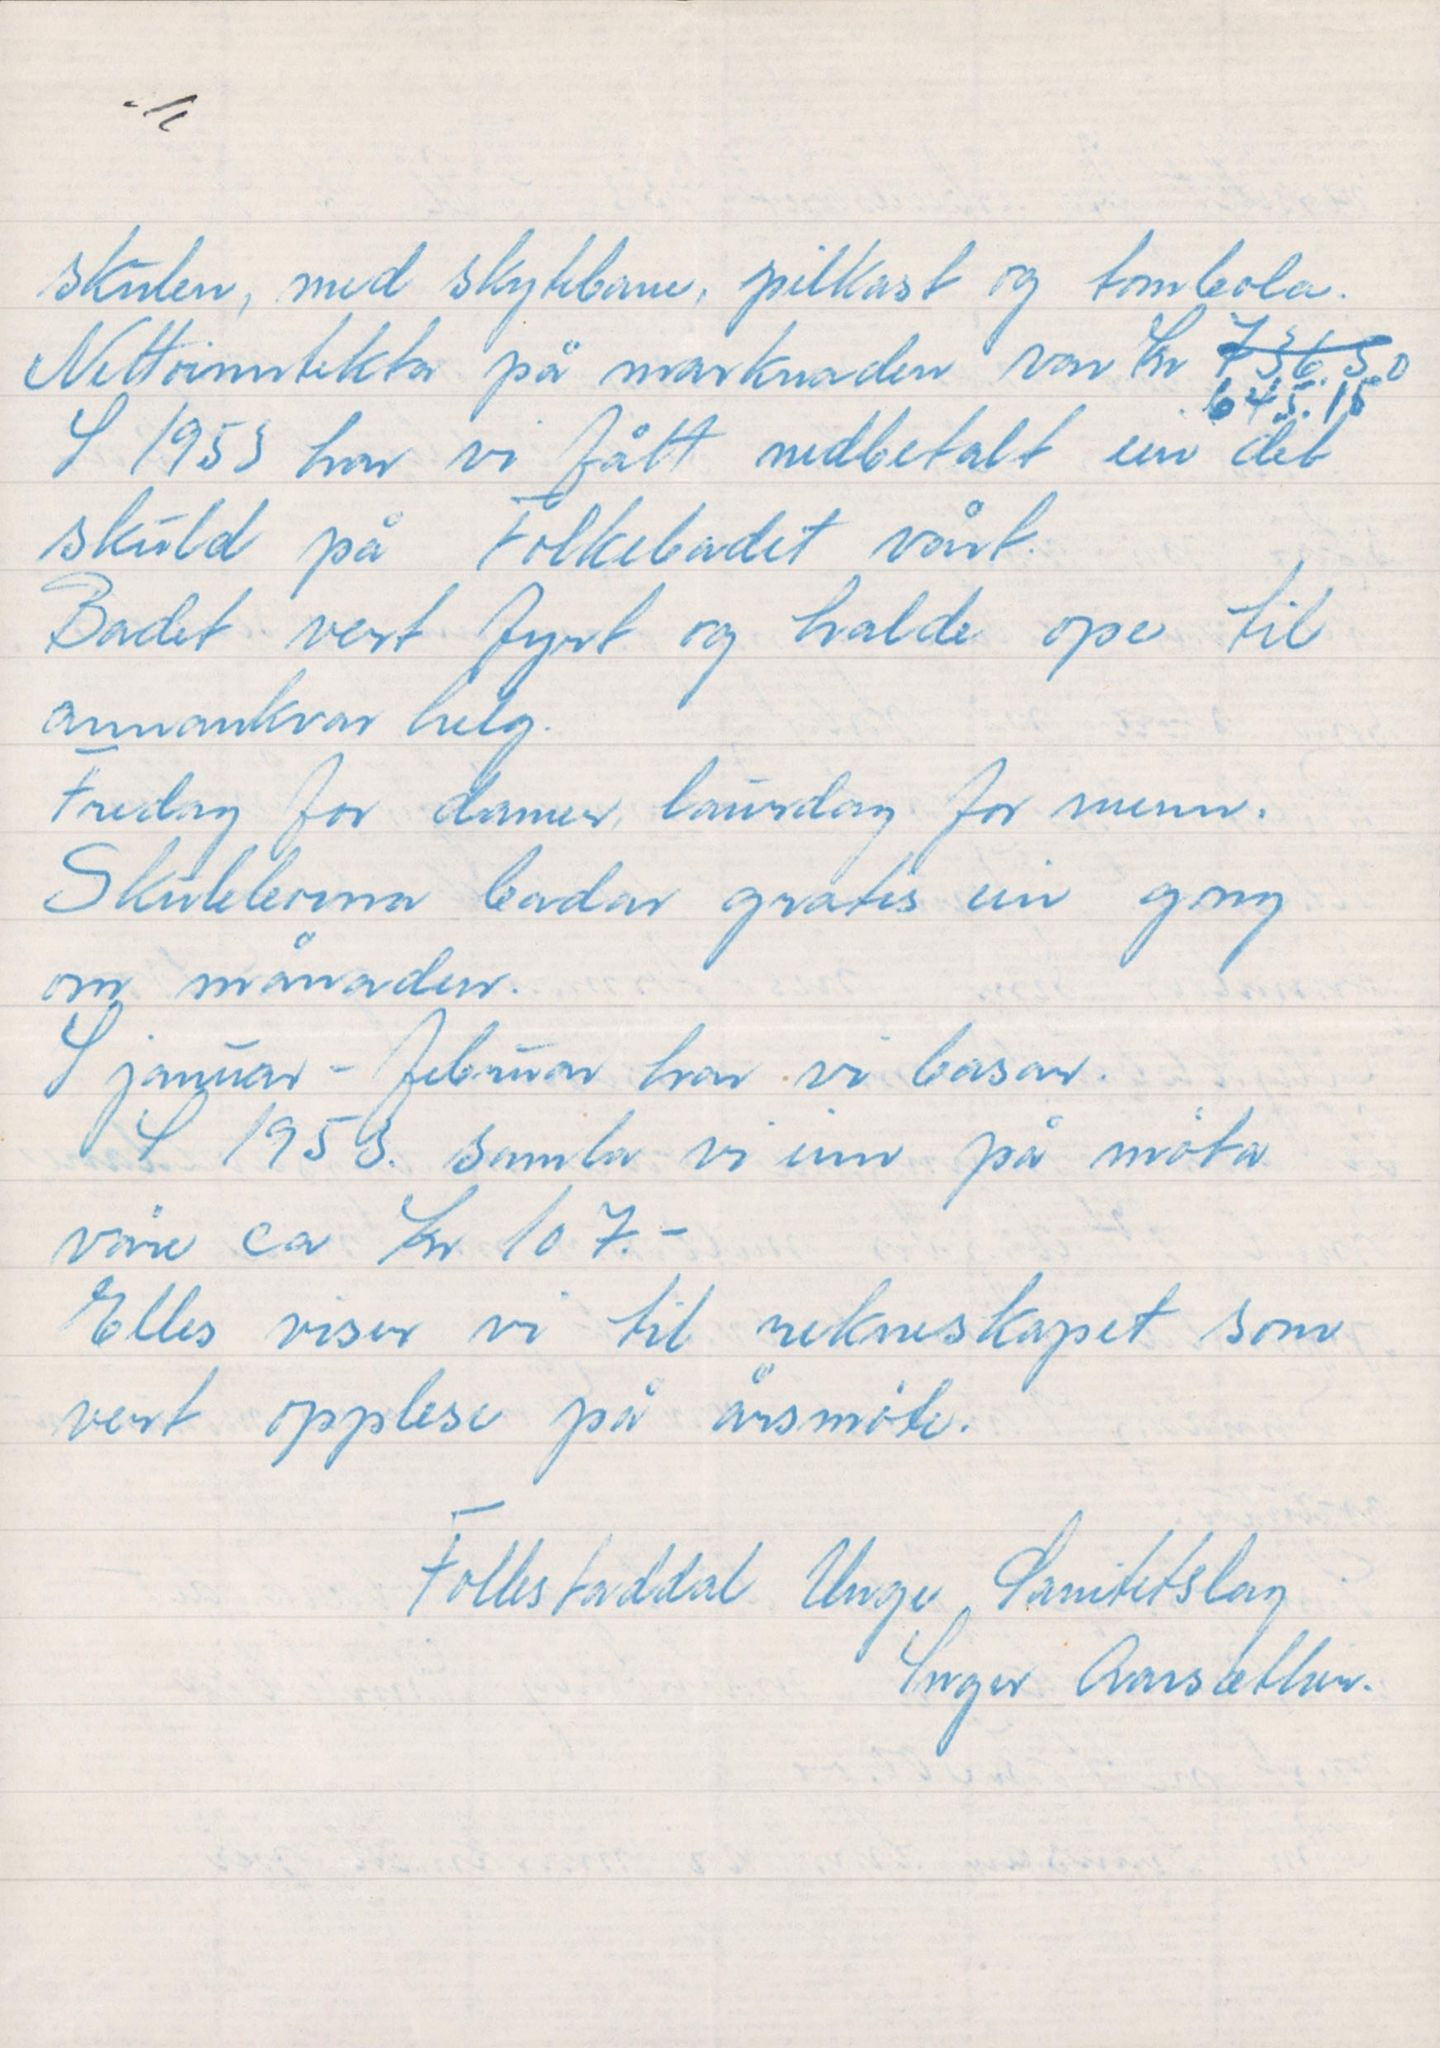 skulen, med skytebane, pilkast og tombola.
Nettoinntekta på marknaden var kr 736.50
645.15
I 1953 har vi fått nedbetalt ein del
skuld på Folkebadet vårt.
Badet vert fyrt og halde ope til
annankvar helg.
Fredag for damer, laurdag for menn.
Skuleborna badar gratis ein gong
om månaden.
I januar - februar har vi basar.
I 1953. samla vi inn på møta
våre ca kr 107.-
Elles viser vi til rekneskapet som
vert opplese på årsmøte.
Follestaddal Unge Sanitetslag
Inger Aarsæther.